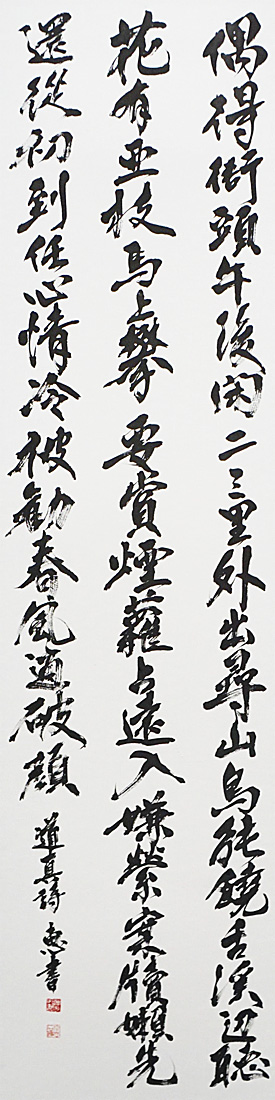 偶得衙頭午後閑二三里外出尋山鳥能饒舌溪辺聴
花有亜枝馬上攀要賞煙蘿占遠入嫌縈案牘嬾先
還従初到任心情冷被勧春風適破顔
道真詩 恵書